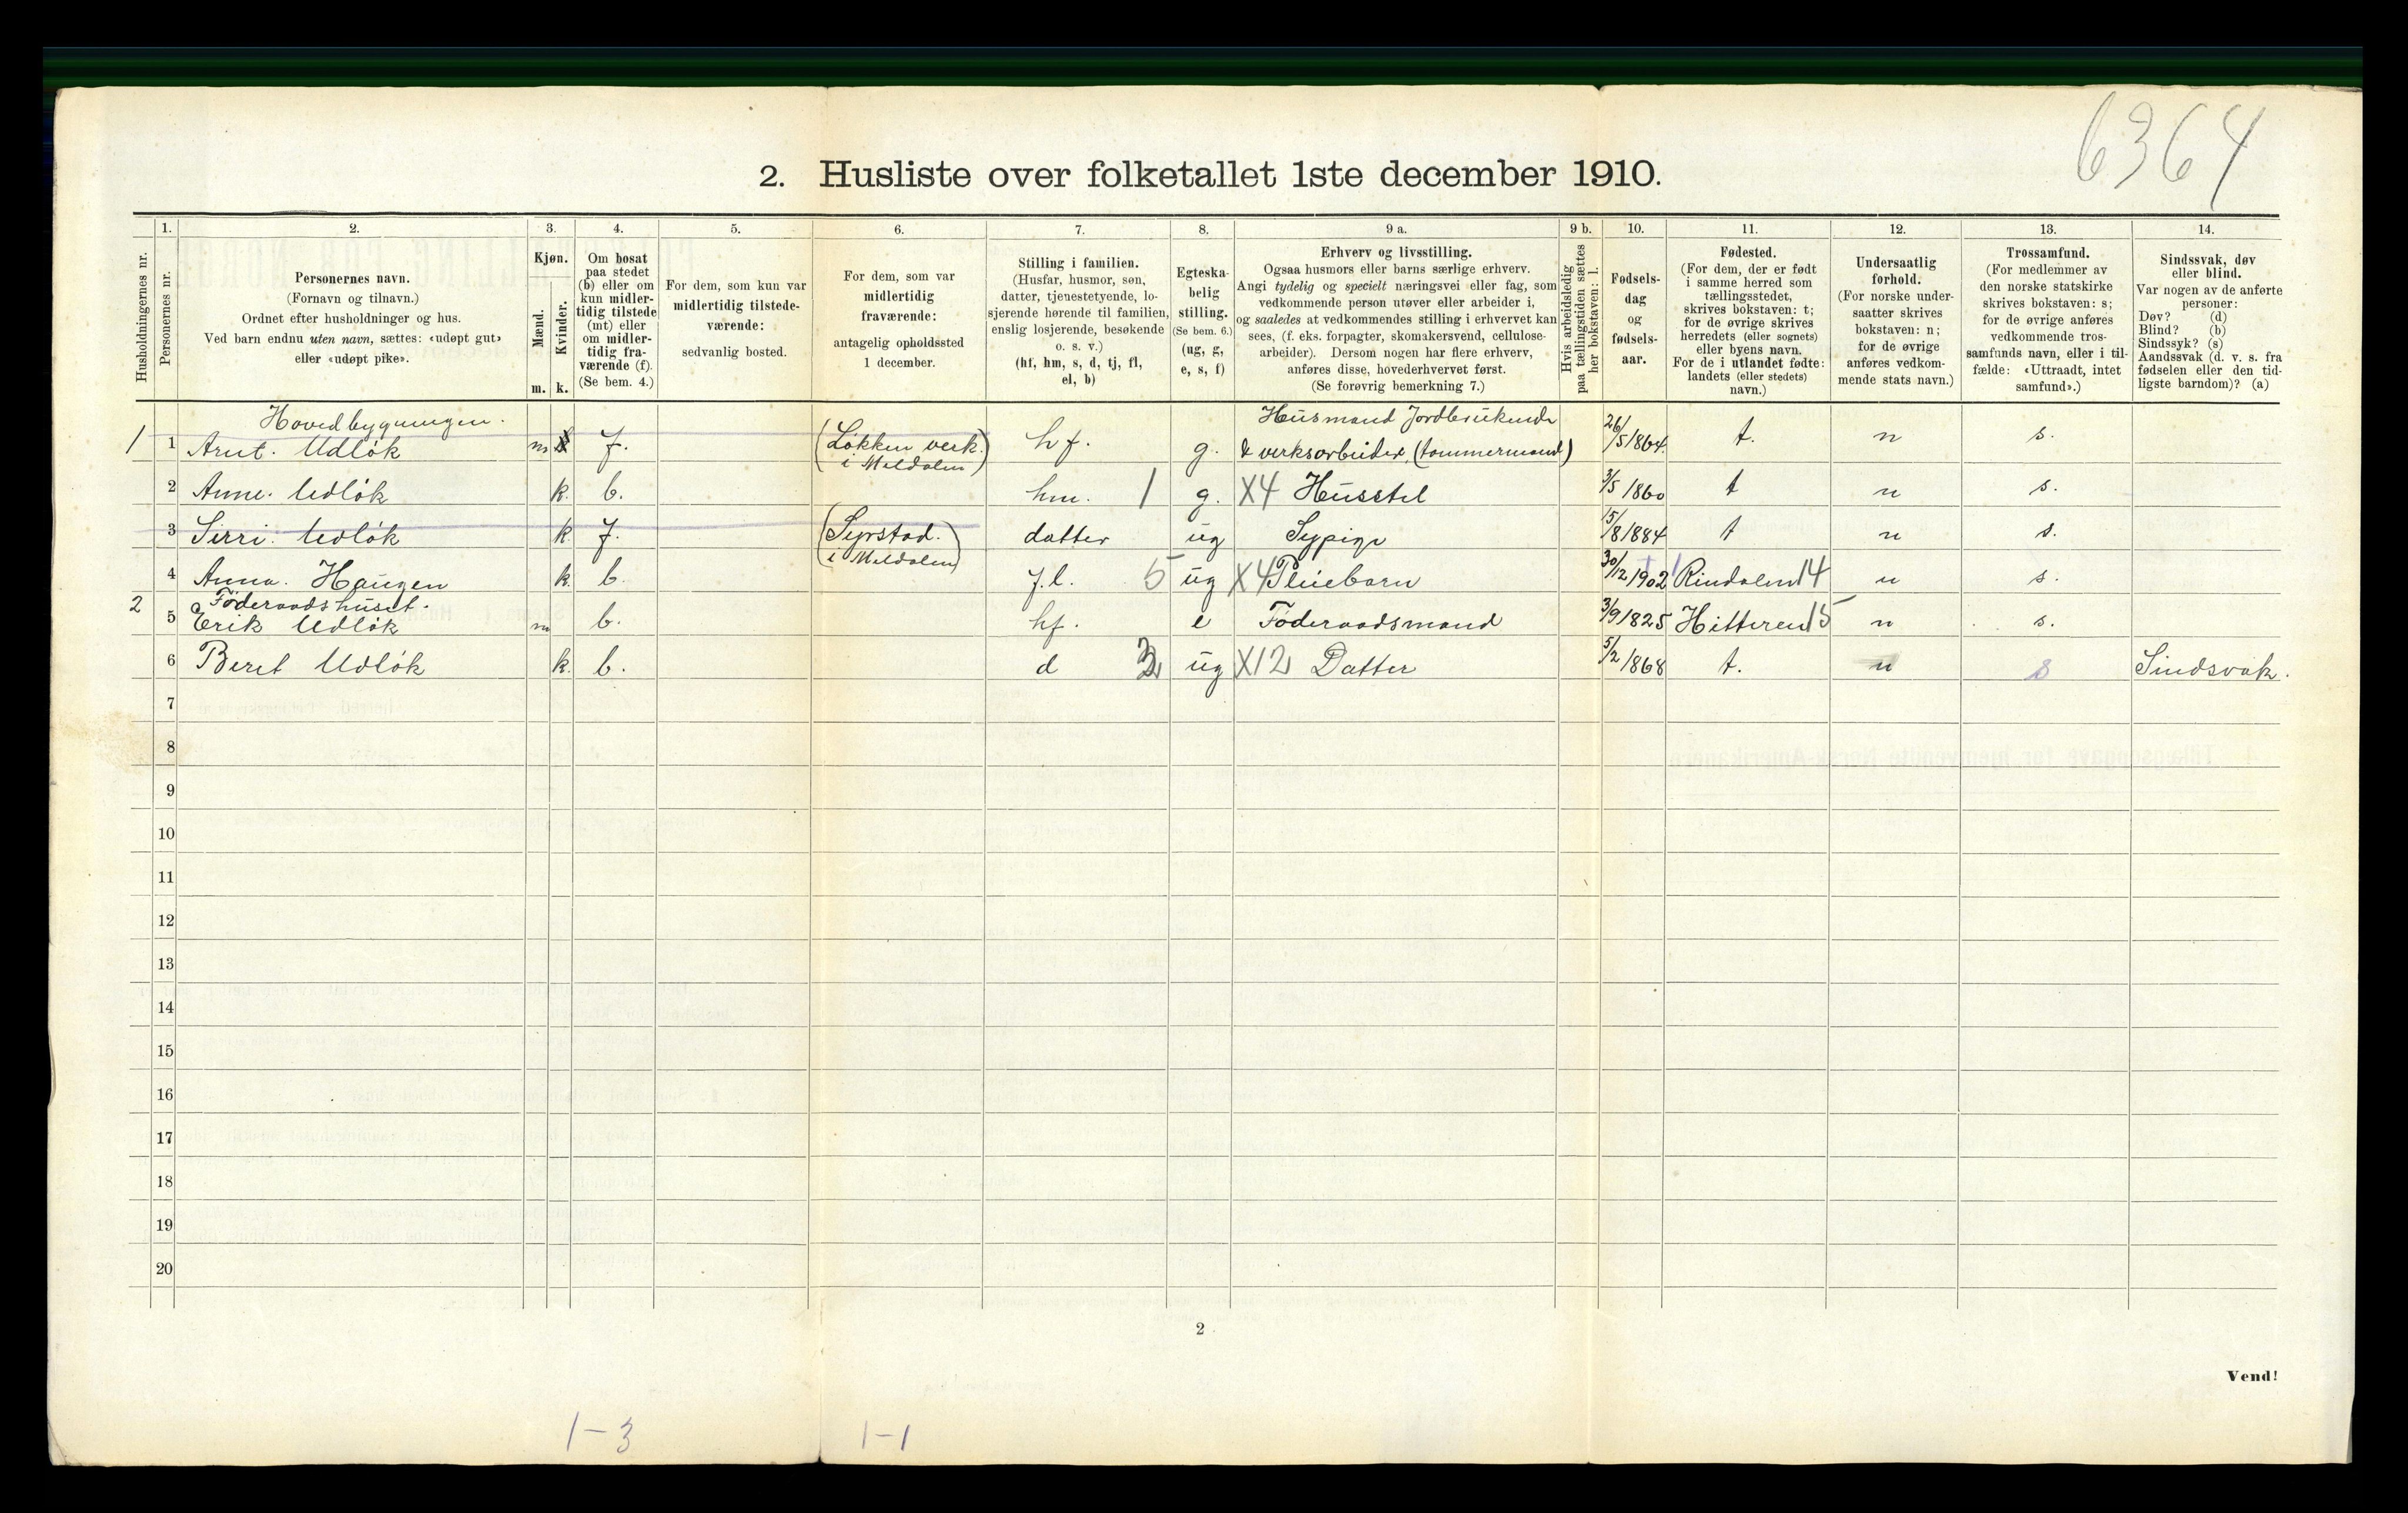 6364
2. Husliste over folketallet 1ste december 1910.
Husholdningernes nr.
1.
Personernes nr.
2.
Personernes navn.
(Fornavn og tilnavn.)
Ordnet efter husholdninger og hus.
Ved barn endnu uten navn, sættes: «udøpt gut»
eller «udøpt pike».
3.
Kjøn.
Mænd.
Kvinder.
m. k.
4.
Om bosat
paa stedet
(b) eller om
kun midler-
tidig tilstede
(mt) eller
om midler-
tidig fra-
værende (f).
(Se bem. 4.)
5.
For dem, som kun var
midlertidig tilstede-
værende:
sedvanlig bosted.
6.
For dem, som var
midlertidig
fraværende:
antagelig opholdssted
1 december.
7.
Stilling i familien.
(Husfar, husmor, søn,
datter, tjenestetyende, lo-
sjerende hørende til familien,
enslig losjerende, besøkende
o. s. v.)
(hf, hm, s, d, tj, fl,
el, b)
8.
Egteska-
belig
stilling.
(Se bem. 6.)
(ug, g,
e, s, f)
9 a.
Erhverv og livsstilling.
Ogsaa husmors eller barns særlige erhverv.
Angi tydelig og specielt næringsvei eller fag, som
vedkommende person utøver eller arbeider i,
og saaledes at vedkommendes stilling i erhvervet kan
sees, (f. eks. forpagter, skomakersvend, cellulose-
arbeider). Dersom nogen har flere erhverv,
anføres disse, hovederhvervet først.
(Se forøvrig bemerkning 7.)
9 b.
Hvis arbeidsledig
paa tællingstiden sættes
her bokstaven: l.
10.
Fødsels-
dag
og
fødsels-
aar.
11.
Fødested.
(For dem, der er født
i samme herred som
tællingsstedet,
skrives bokstaven: t;
for de øvrige skrives
herredets (eller sognets)
eller byens navn.
For de i utlandet fødte:
landets (eller stedets)
navn.)
12.
Undersaatlig
forhold.
(For norske under-
saatter skrives
bokstaven: n;
for de øvrige
anføres vedkom-
mende stats navn.)
13.
Trossamfund.
(For medlemmer av
den norske statskirke
skrives bokstaven: s;
for de øvrige anføres
vedkommende tros-
samfunds navn, eller i til-
fælde: «Uttraadt, intet
samfund».)
14.
Sindssvak, døv
eller blind.
Var nogen av de anførte
personer:
Døv? (d)
Blind? (b)
Sindssyk? (s)
Aandssvak (d. v. s. fra
fødselen eller den tid-
ligste barndom)? (a)
Hovedbygningen.
1 1 Arnt. Udløk m f. (Løkken verk. i Meldalen) hf. g. Husmand Jordbrukende & verksarbeider, (tømmermand) 26/5 1864. t. n s.
2 Anne. Udløk k. b. hm. 1 g. X4 Husstel 3/5 1860 t n s.
3 Sirri. Udløk k. f. (Syrstad. i Meldalen) datter ug Sypige 15/8 1884 t n s.
4 Anna. Haugen k. b. f.l. 5 ug X4 Pleiebarn 30/12 1902 Rindalen 14 n s.
Føderaadshuset.
2 5 Erik Udløk m b. hf. e Føderaadsmand 3/9 1825 Hitteren 15 n s.
6 Beret Udløk k. b. d 3 ug X12 Datter 5/2 1868 t. n s Sindsvak.
7
8
9
10
11
12
13
14
15
16
17
18
19
20
2
Vend!
1-3 1-1